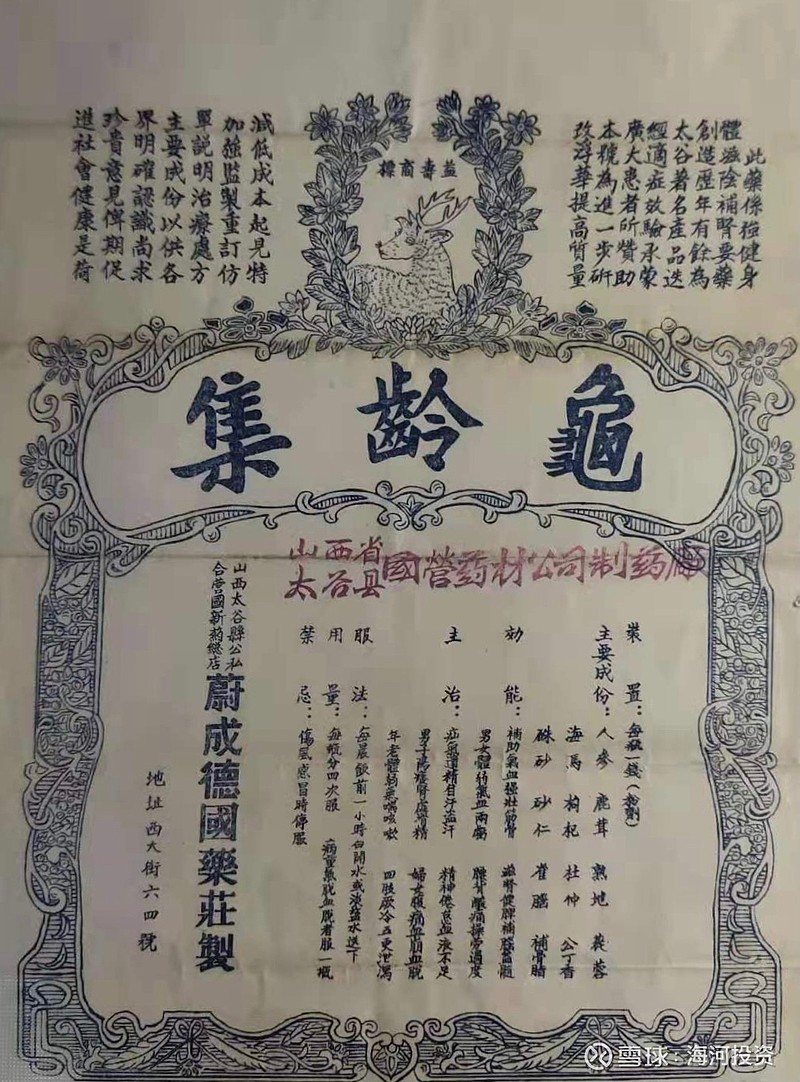 此藥係健身
體滋陰補腎要藥
創造歷年有餘為
太谷著名產品迭
經適症效驗承蒙
廣大患者所贊助
本號為進一步研
攻浮華提高質量
減低成本起見特
加強監製重訂仿
單說明治療處方
主要成份以供各
界明確認識尚求
珍貴意見俾期促
進社會健康是荷
益壽商標
龜齡集
山西省太谷县國營药材公司制药厰
裝置：每瓶一錢（粉劑）
主要成份：人參 鹿茸 熟地 蓯蓉
海馬 枸杞 杜仲 公丁香
硃砂 砂仁 雀腦 補骨脂
効能：補助氣血強壯筋骨 滋腎健脾補腦益髓
男女體弱氣血兩虧 腰背酸痛操勞過度
主治：疝氣遺精自汗盜汗 精神倦怠血液不足
男子陽痿腎虛滑精 婦女腹痛血崩血脫
年老體弱氣喘咳嗽 四肢厥冷五更泄瀉
服法：每晨飯前一小時白開水或淡鹽水送下
用量：每瓶分四次服 病重氣脫血脫者服一瓶
禁忌：傷風感冒時停服
山西太谷縣公私
合營國新葯總店
蔚成德國藥莊製
地址 西大街六四號
雪球：海河投资